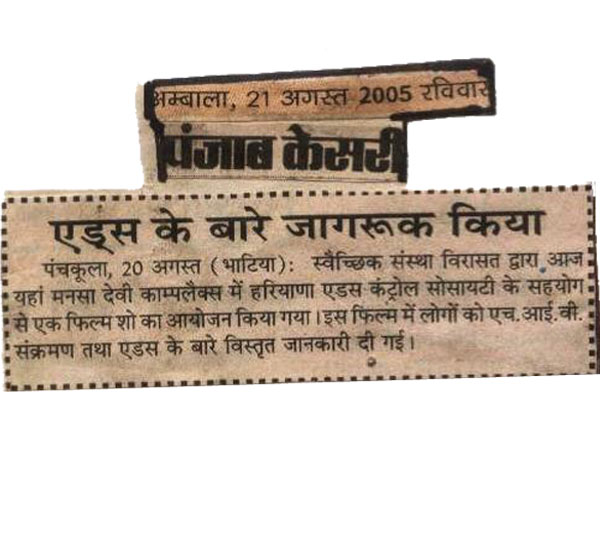 अम्बाला, 21 अगस्त 2005 रविवार
पंजाब केसरी
एड्स के बारे जागरूक किया
पंचकूला, 20 अगस्त (भाटिया): स्वैच्छिक संस्था विरासत द्वारा आज
यहां मनसा देवी काम्पलैक्स में हरियाणा एडस कंट्रोल सोसायटी के सहयोग
से एक फिल्म शो का आयोजन किया गया। इस फिल्म में लोगों को एच.आई.वी.
संक्रमण तथा एडस के बारे विस्तृत जानकारी दी गई।